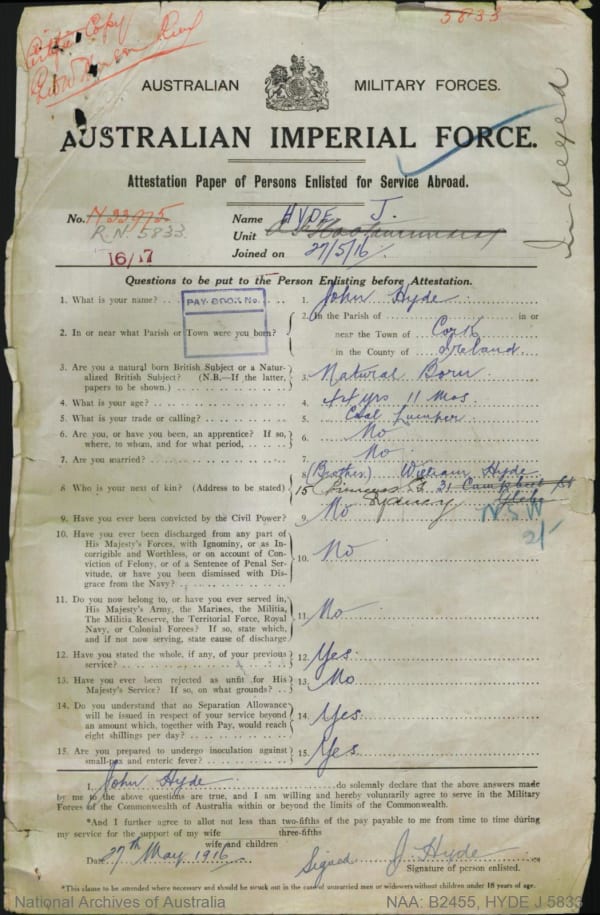 5833
Certified Copy
AUSTRALIAN MILITARY FORCES.
AUSTRALIAN IMPERIAL FORCE.
Indexed
Attestation Paper of Persons Enlisted for Service Abroad.
No. N33975
R.N. 5833.
16/17
Name HYDE J.
Unit
Joined on 27/5/16.
Questions to be put to the Person Enlisting before Attestation.
1. What is your name? 1. John Hyde
PAY BOOK No.
2. In or near what Parish or Town were you born? 2. In the Parish of in or
near the Town of Cork
in the County of Ireland
3. Are you a natural born British Subject or a Natu-
ralized British Subject? (N.B.—If the latter,
papers to be shown.) 3. Natural Born
4. What is your age? 4. 44 yrs 11 Mos
5. What is your trade or calling? 5. Coal Lumper
6. Are you, or have you been, an apprentice? If so,
where, to whom, and for what period, 6. No
7. Are you married? 7. No
8. Who is your next of kin? (Address to be stated) 8. (Brother) William Hyde
15 St 31 Campbell St
Sydney Glebe
N.S.W
2/-
9. Have you ever been convicted by the Civil Power? 9. No
10. Have you ever been discharged from any part of
His Majesty's Forces, with Ignominy, or as In-
corrigible and Worthless, or on account of Con-
viction of Felony, or of a Sentence of Penal Ser-
vitude, or have you been dismissed with Dis-
grace from the Navy? 10. No
11. Do you now belong to, or have you ever served in,
His Majesty's Army, the Marines, the Militia,
The Militia Reserve, the Territorial Force, Royal
Navy, or Colonial Forces? If so, state which,
and if not now serving, state cause of discharge 11. No
12. Have you stated the whole, if any, of your previous
service? 12. Yes
13. Have you ever been rejected as unfit for His
Majesty's Service? If so, on what grounds? 13. No
14. Do you understand that no Separation Allowance
will be issued in respect of your service beyond
an amount which, together with Pay, would reach
eight shillings per day? 14. Yes
15. Are you prepared to undergo inoculation against
small-pox and enteric fever? 15. Yes
I, John Hyde do solemnly declare that the above answers made
by me to the above questions are true, and I am willing and hereby voluntarily agree to serve in the Military
Forces of the Commonwealth of Australia within or beyond the limits of the Commonwealth.
*And I further agree to allot not less than two-fifths of the pay payable to me from time to time during
my service for the support of my wife three-fifths
wife and children
Date 27th May 1916 Signed J Hyde
Signature of person enlisted.
*This clause to be amended where necessary and should be struck out in the case of unmarried men or widowers without children under 18 years of age.
National Archives of Australia NAA: B2455, HYDE J 5833